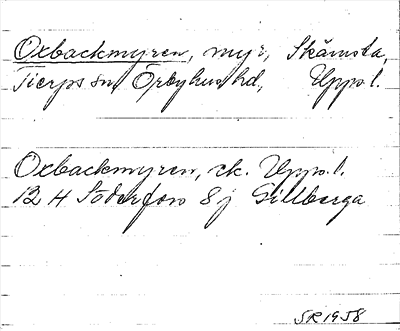 Oxbackmyren, myr, Skämsta,
Tierps sn, Örbyhus hd, Uppl.
Oxbackmyren, ek. Uppl.
12 H Söderfors 8 j Gillberga
SR 1958